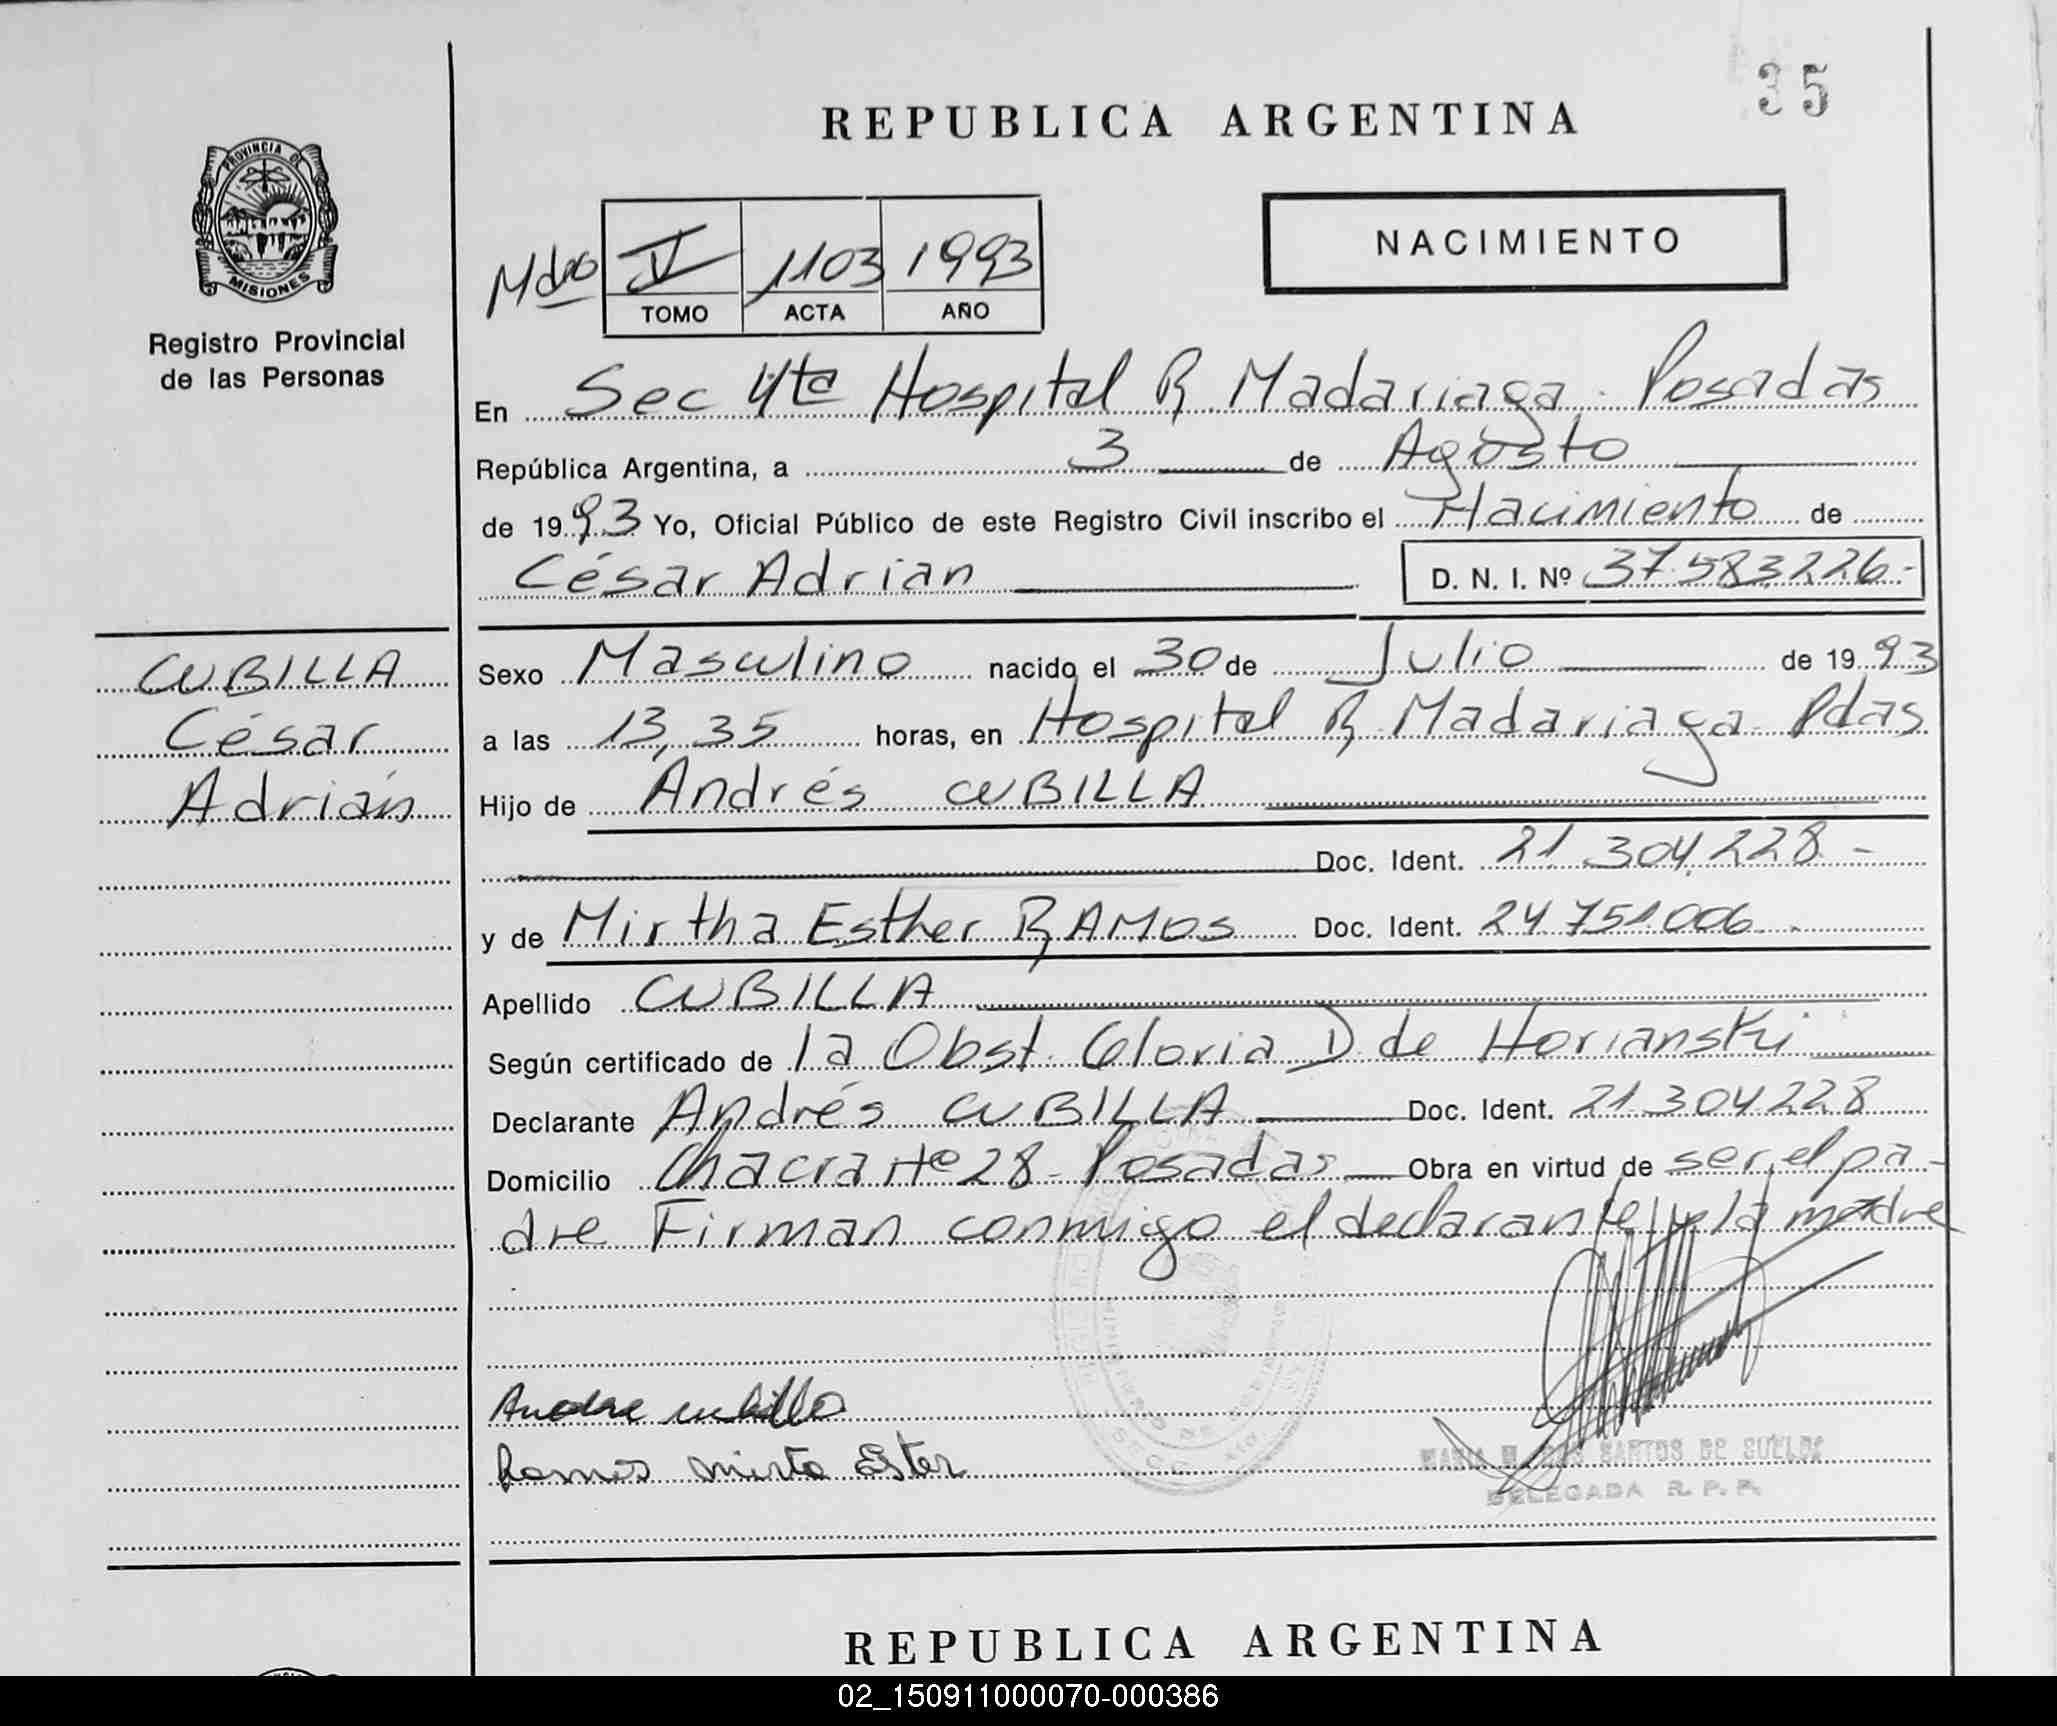 35
REPUBLICA ARGENTINA
PROVINCIA DE
MISIONES
Registro Provincial
de las Personas
NACIMIENTO
V 1103 1993
TOMO ACTA AÑO
En Sec 4ta Hospital R. Madariaga - Posadas
República Argentina, a 3 de Agosto
de 1993 Yo, Oficial Público de este Registro Civil inscribo el Nacimiento de
César Adrian D. N. I. Nº 37.583.226.-
CUBILLA
César
Adrián
Sexo Masculino nacido el 30 de Julio de 1993
a las 13,35 horas, en Hospital R. Madariaga - Pdas
Hijo de Andrés CUBILLA
Doc. Ident. 21.304.228.-
y de Mirtha Esther RAMOS Doc. Ident. 24.751.006.-
Apellido CUBILLA
Según certificado de la Obst. Gloria D. de Horianski
Declarante Andrés CUBILLA Doc. Ident. 21.304.228
Domicilio Chacra Nº 28 - Posadas Obra en virtud de ser el pa-
dre Firman conmigo el declarante y la madre
Ramos mirta Ester
DOS SANTOS DE
DELEGADA R. P. P.
REPUBLICA ARGENTINA
02_150911000070-000386